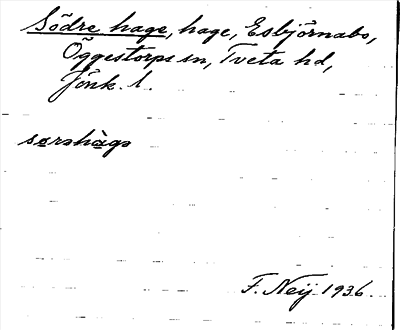 Södre hage, hage, Esbjörnabo,
Öggestorps sn, Tveta hd,
Jönk. l.
sørshàgs
F. Neij 1936.